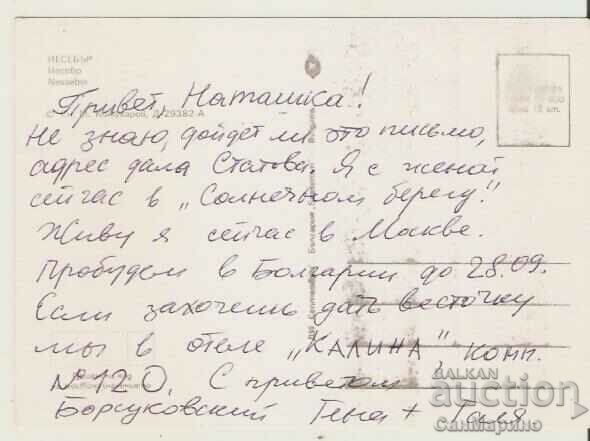 НЕСЕБЪР
Несебр
Nessebre
Привет, Наташка!
Д-29382-А
Не знаю, дойдет ли это письмо,
адрес дала Статова. Я с женой
сейчас в „Солнечном берегу".
Живу я сейчас в Москве.
Пробудем в Болгарии до 28.09.
Если захочешь дать весточку
мы в отеле „КАЛИНА", комн.
№ 120. С приветом
Борсуковский Гена + Галя
BALKAN
auction
СанМарино